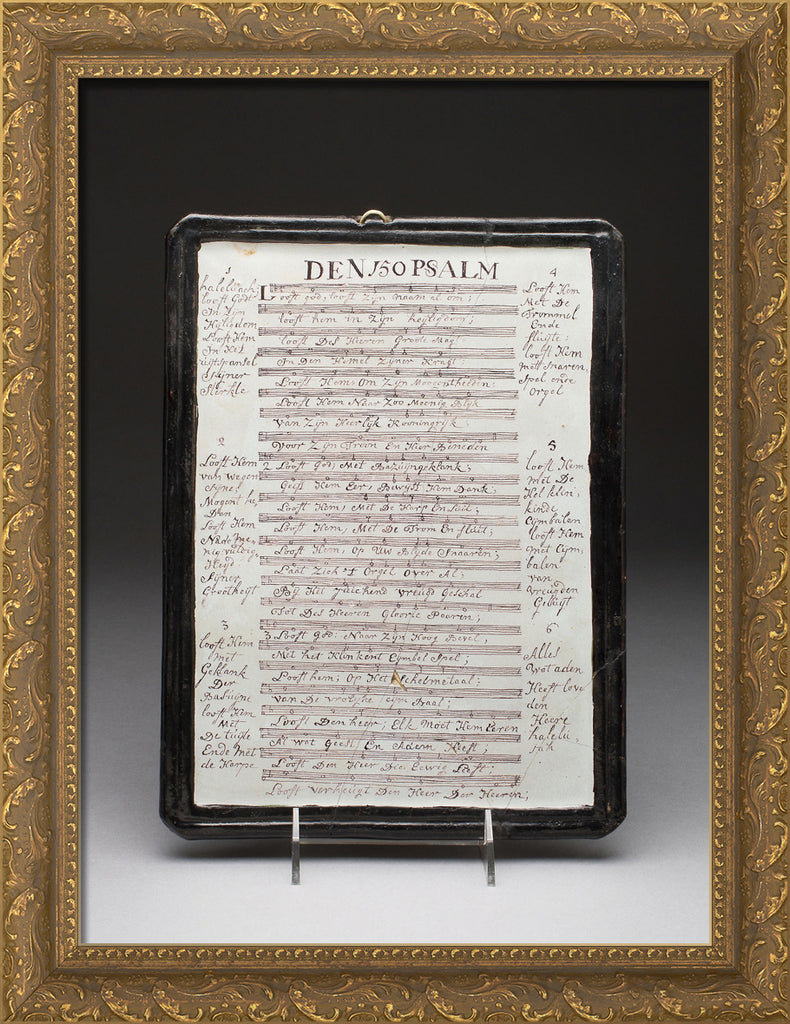 DEN 150 PSALM
1
haleluach:
looft Godt
In Zyn
Hyligdom
Looft Hem
In Het
uijtspansel
Syner
Sterkle
2
Looft Hem
van wegen
Syne
Mogent he
Den
Looft Hem
Na de me
nig vuldig
Heyd
Syner
Grootheyt
3
looft Hem
Met
Geklank
Der
Basuyne
looft Hem
Met
De Luyte
Ende Met
de Harpe
Looft god, looft Zyn naam al om;
looft hem in Zyn heyligdom;
looft Des Heeren Groote Magt
In Den Hemel Zyner Kragt;
Looft Hem, Om Zyn Mogentheden;
Looft Hem Naar Zoo Meenig Blyk
van Zyn Heerlyk Kooningryk;
Voor Zyn Troon En Hier Beneden
2 Looft God, Met Bazuyngeklank;
Geeft Hem Eer, Bewyst Hem Dank;
Looft Hem, Met De Harp En Luit;
Looft Hem, Met De Trom En fluit;
Looft Hem, Op Uw Blyde Snaaren;
Laat Zich 't Orgel Over Al;
By Het Juichend vreugd Geschal
Tot Des Heeren Gloorie Paaren;
3 Looft God: Naar Zyn Hoog Bevel,
Met het Klinkent Cymbel Spel;
Looft hem; Op Het Schelmetaal;
van De vrolyke Cym Baal;
Looft Den heer; Elk Moet Hem Eeren
Al wat Geest En Adem Heeft;
Looft Den Heer Die Eewig Leeft;
Looft verheugt Den Heer Der Heeren;
4
Looft Hem
Met De
Trommel
Ende
fluyte:
looft Hem
met Snaren,
Spel ende
Orgel
5
looft Hem
met De
Hel klin,
kinde
Cymbalen
looft Hem
met Cym,
balen
van
vreugden
Geluyt
6
Alles
Wat aden
Heeft love
den
Heere
halelu,
jah